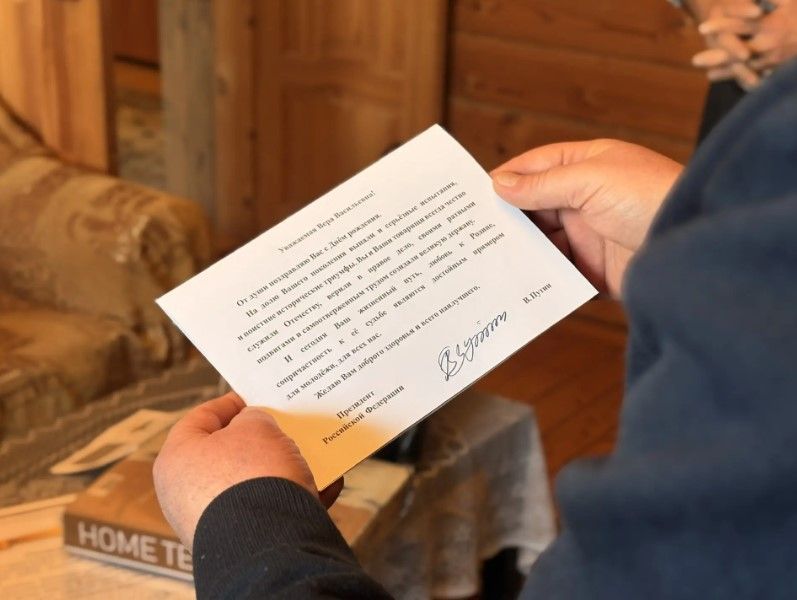 Уважаемая Вера Васильевна!
От души поздравляю Вас с Днём рождения.
На долю Вашего поколения выпали и серьёзные испытания,
и поистине исторические триумфы. Вы и Ваши товарищи всегда честно
служили Отечеству, верили в правое дело, своими ратными
подвигами и самоотверженным трудом создавали великую державу.
И сегодня Ваш жизненный путь, любовь к Родине,
сопричастность к её судьбе являются достойным примером
для молодёжи, для всех нас.
Желаю Вам доброго здоровья и всего наилучшего.
Президент
Российской Федерации
В.Путин
HOME TE